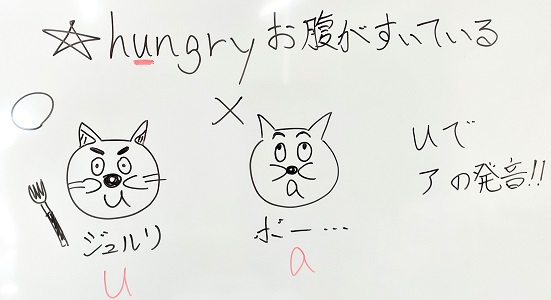 ☆hungry お腹がすいている
○
×
u
a
uで
アの発音!!
ジュルリ
ボー…
u
a